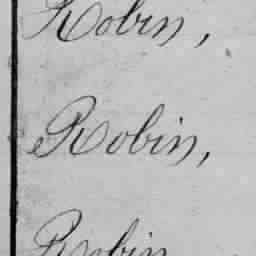 Robin,
Robin,
Robin